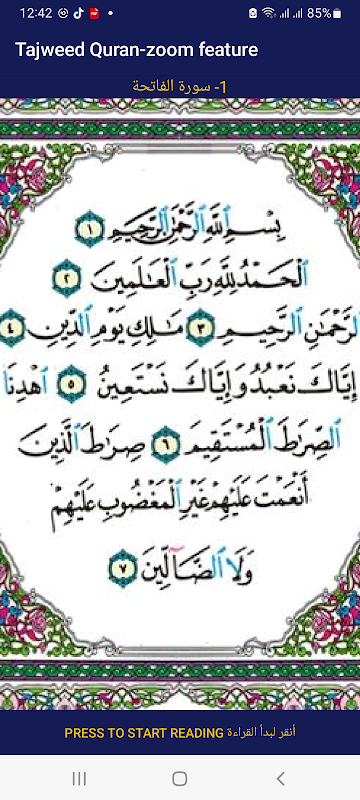 12:42 85%
Tajweed Quran-zoom feature
1- سورة الفاتحة
بِسْمِ اللَّهِ الرَّحْمَٰنِ الرَّحِيمِ ١
الْحَمْدُ لِلَّهِ رَبِّ الْعَالَمِينَ ٢
الرَّحْمَٰنِ الرَّحِيمِ ٣ مَالِكِ يَوْمِ الدِّينِ ٤
إِيَّاكَ نَعْبُدُ وَإِيَّاكَ نَسْتَعِينُ ٥ اهْدِنَا
الصِّرَاطَ الْمُسْتَقِيمَ ٦ صِرَاطَ الَّذِينَ
أَنْعَمْتَ عَلَيْهِمْ غَيْرِ الْمَغْضُوبِ عَلَيْهِمْ
وَلَا الضَّآلِّينَ ٧
PRESS TO START READING أنقر لبدأ القراءة